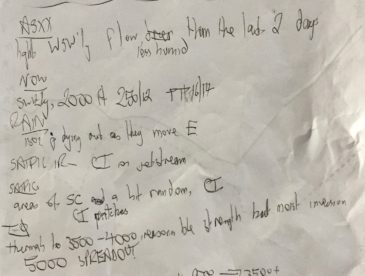 ASXX
light W'ly flow than the last 2 days
less humid
NOW
2000ft 250/12 16/14
RAIN
dying out as they move E
SATPIC IR- CI in jetstream
SATPIC
areas of SC and a bit random, CI
CI patches
thermals to 3500-4000, reasonable strength but most inversion
5000 SPREADOUT